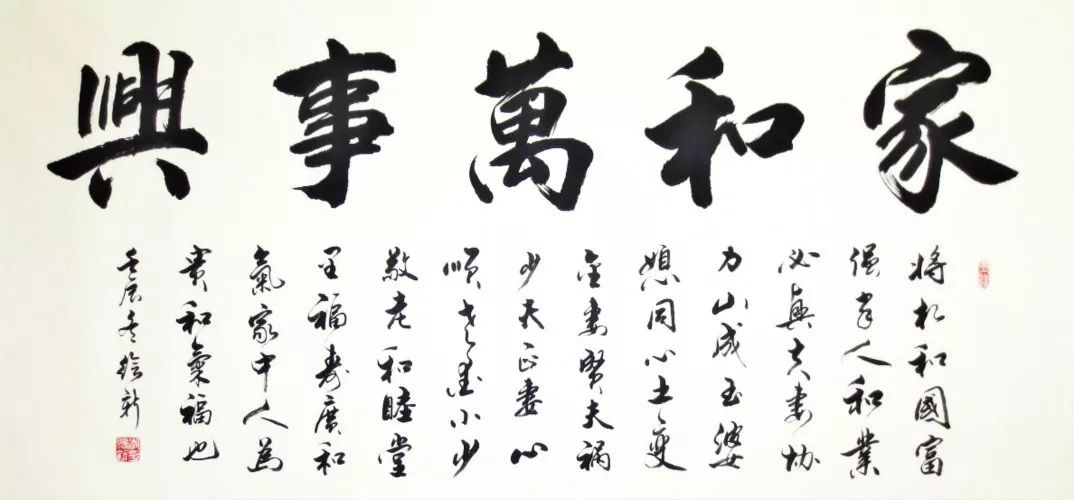 家和萬事興
将相和國富
强家人和業
必興夫妻协
力山成玉婆
媳同心土變
金妻賢夫禍
少夫正妻心
順老愛小少
敬老和睦堂
里福寿廣和
氣家中人為
貴和氣福也
壬辰冬新